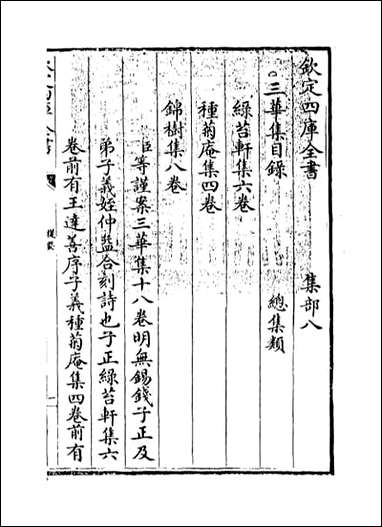 欽定四庫全書 集部八
三華集目錄 總集類
綠苔軒集六卷
種菊庵集四卷
錦樹集八卷
臣等謹案三華集十八卷明無錫錢子正及
弟子義姪仲益合刻詩也子正綠苔軒集六
卷前有王達善序子義種菊庵集四卷前有